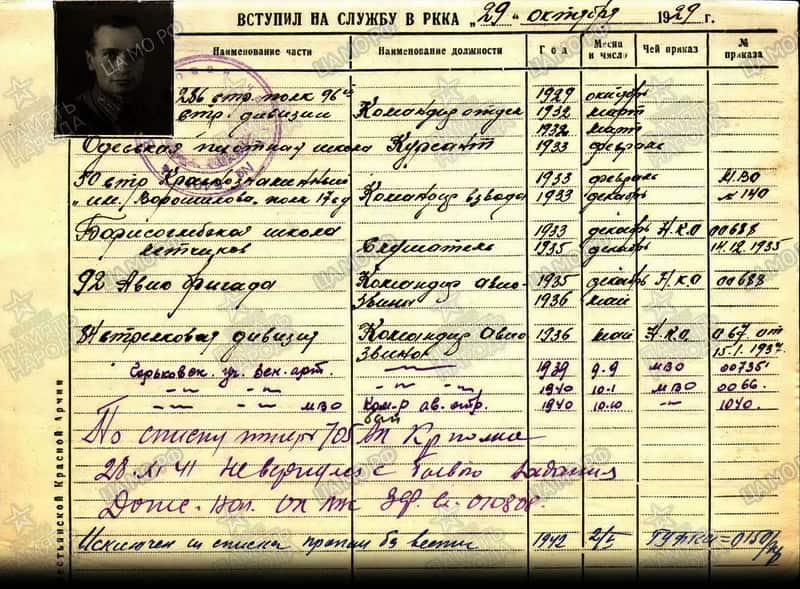 ВСТУПИЛ НА СЛУЖБУ В РККА „29“ октября 1929 г.
Наименование части Наименование должности Год Месяц и число Чей приказ № приказа
286 стр. полк 96ой 1929 октябрь
стр. дивизии Командир отдел 1932 март
1932 март
Одесская пехотная школа Курсант 1933 февраль
50 стр Краснознаменный 1933 февраль МВО
„им. Ворошилова полк 17 сд Командир взвода 1933 декабрь № 140
Борисоглебская школа 1933 декабрь Н.К.О 00688
летчиков Слушатель 1935 декабрь 14.12.1935
92 Авио бригада Командир авио- 1935 декабрь Н.К.О 00688
Звена 1936 май
84 стрелковая дивизия Командир Авио 1936 май Н.К.О 067 от
Звена 15.1.1937.
Горьковск. уч. Зен. арт. — 1939 9.9 МВО 00735
— " — " — — " — " — 1940 10.1 МВО 0066.
— " — " — МВО Ком-р ав. отр. 1940 10.10 — " — 1040.
По списку потерь 705 ап
28 XI 41 Не вернулся с боевого задания
Донес.
Исключен из списков пропал без вести 1942 ГУФКА = 0150/
естьянской Красной Армии
ЦАМО РФ
ПАМЯТЬ НАРОДА